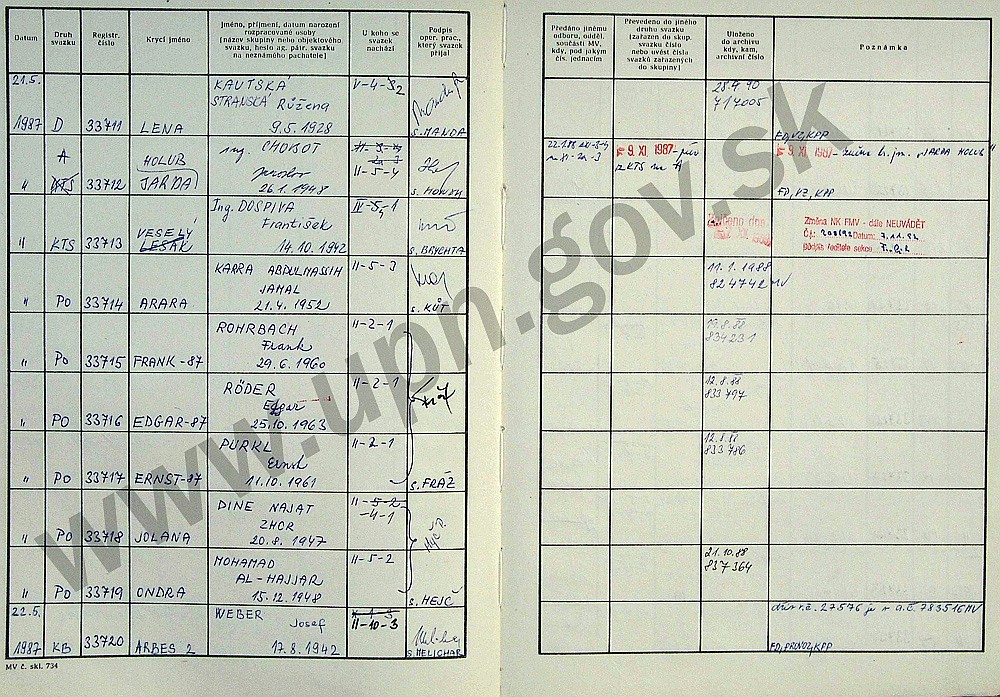 Datum
Druh svazku
Registr. číslo
Krycí jméno
Jméno, příjmení, datum narození rozpracované osoby (název skupiny nebo objektového svazku, heslo ag. pátr. svazku na neznámého pachatele)
U koho se svazek nachází
Podpis oper. prac., který svazek přijal
Předáno jinému odboru, odděl. součásti MV, kdy, pod jakým čís. jednacím
Převedeno do jiného druhu svazku (zařazen do skup. svazku číslo nebo uvést čísla svazků zařazených do skupiny)
Uloženo do archivu kdy, kam, archivní číslo
Poznámka
21.5. KAUTSKÁ V-4-32 28.9.90
STRANSKÁ Růžena 717005
1987 D 33711 LENA 9.5.1928 s. MANDA FD, VZ, KPP
A HOLUB ing. CHOBOT
Jaroslav II-5-4
" KTS 33712 JARDA 26.1.1948
9. XI. 1987
z KTS na A
9. XI. 1987 „JARDA HOLUB"
FD, VZ, KPP
Ing. DOSPIVA IV-5-1
VESELÝ František
" KTS 33713 LESÁK 14.10.1942 s. BRYCHTA
Změna NK FMV - dále NEUVÁDĚT
Č.j.: Datum:
podpis ředitele sekce
KARRA ABDULMASSIH II-5-3 11.1.1988
JAMAL 824742 MV
" PO 33714 ARARA 21.4.1952 s. KŮT
ROHRBACH II-2-1 19.8.88
Frank 834231
" PO 33715 FRANK-87 29.6.1960
RÖDER II-2-1 12.8.88
Edgar 833797
" PO 33716 EDGAR-87 25.10.1963
PURKL II-2-1 12.8.88
Ernst 833786
" PO 33717 ERNST-87 11.10.1961 s. FRÁŽ
DINE NAJAT II-5-2
ZHOR -4-1
" PO 33718 JOLANA 20.8.1947
MOHAMAD II-5-2 21.10.88
AL-HAJJAR 837364
" PO 33719 ONDRA 15.12.1948 s. HEJČ
22.5. WEBER X-1-3
Josef II-10-3
1987 KB 33720 ARBES 2 17.8.1942 s. MELICHAR
r.č. 27576 je v a.č. 783516 MV
FD, PROVOZ, KPP
MV č. skl. 734
www.upn.gov.sk